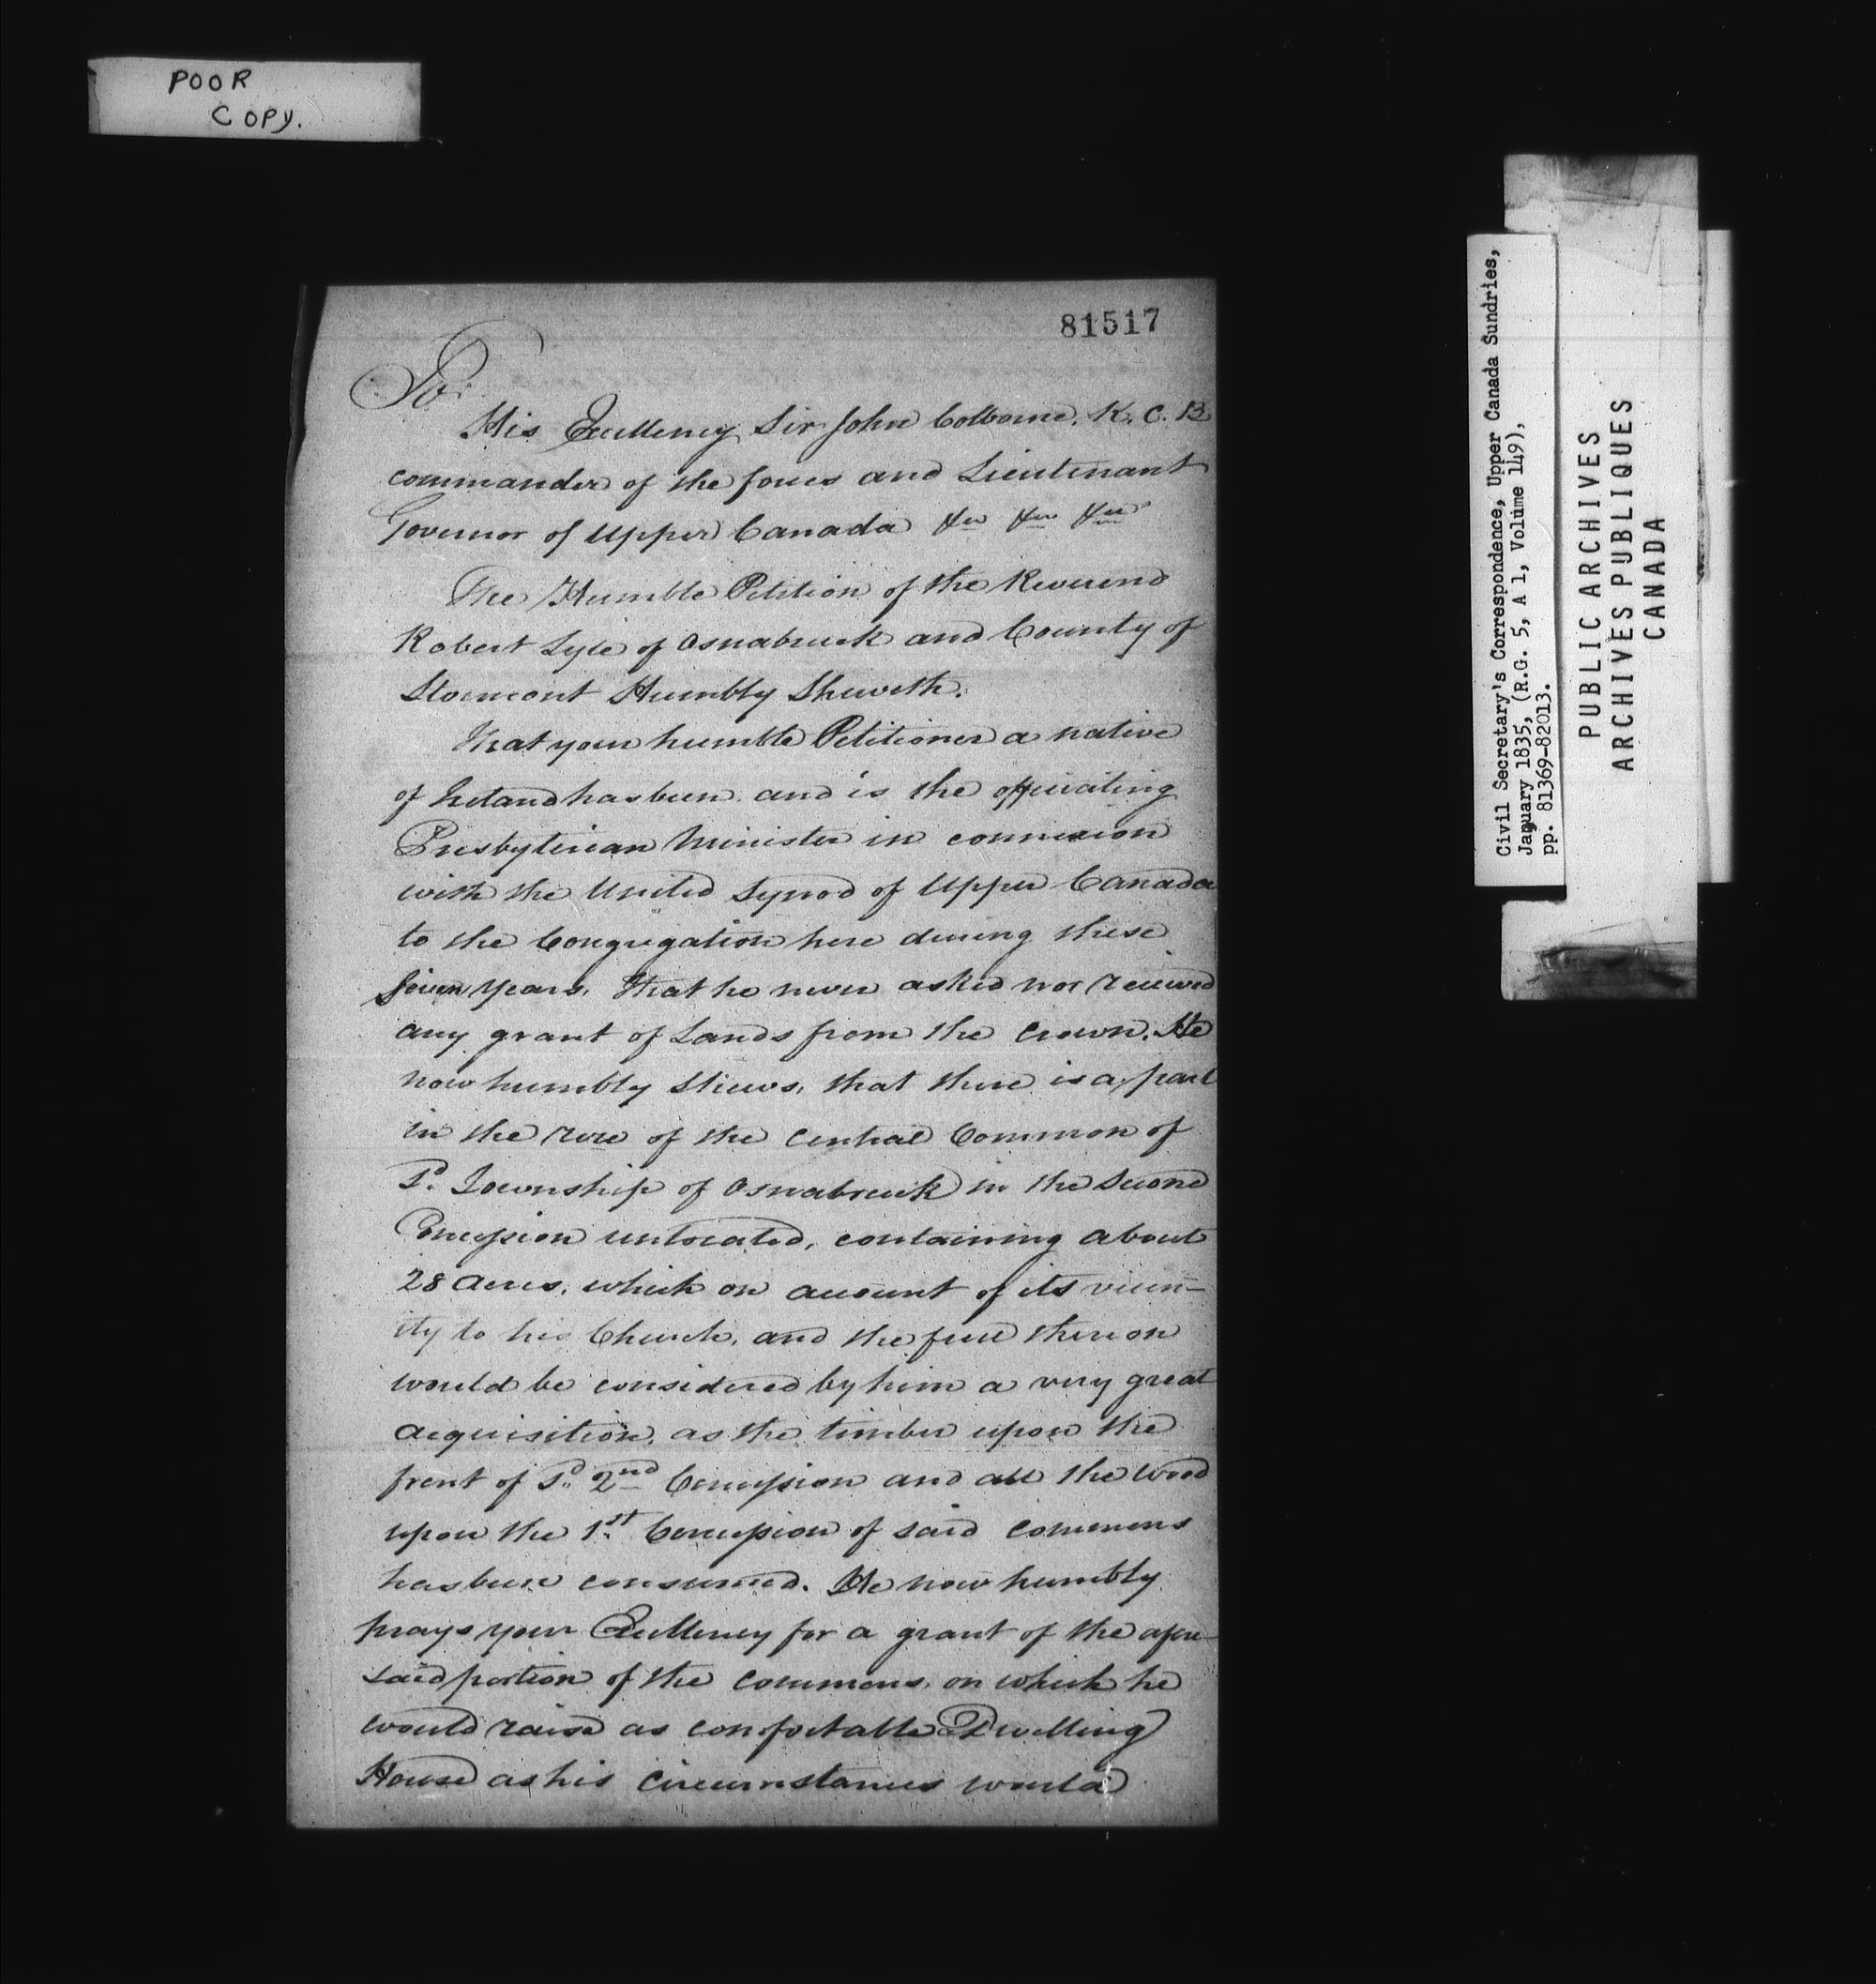 POOR
COPY.
81517
To
His Excellency Sir John Colborne, K. C. B
commander of the forces and Lieutenant
Governor of Upper Canada &c &c &c
The Humble Petition of the Reverend
Robert Lyle of Osnabruck and County of
Stormont Humbly Sheweth.
That your humble Petitioner a native
of Ireland has been and is the officiating
Presbyterian Minister in connexion
with the United Synod of Upper Canada
to the Congregation here during these
Seven years. That he never asked nor received
any grant of Lands from the Crown. He
now humbly Shews, that there is a part
in the rere of the Central Common of
Sd. Township of Osnabruck in the Second
Concession unlocated, containing about
28 Acres, which on account of its vicin-
ity to his Church, and the fuel thereon
would be considered by him a very great
acquisition, as the timber upon the
front of Sd. 2nd Concession and all the wood
upon the 1st. Concession of said commons
has been consumed. He now humbly
prays your Excellency for a grant of the afore-
said portion of the commons, on which he
would raise as comfortable Dwelling
House as his circumstances would
Civil Secretary's Correspondence, Upper Canada Sundries,
January 1835, (R.G. 5, A 1, Volume 149),
pp. 81369-82013.
PUBLIC ARCHIVES
ARCHIVES PUBLIQUES
CANADA